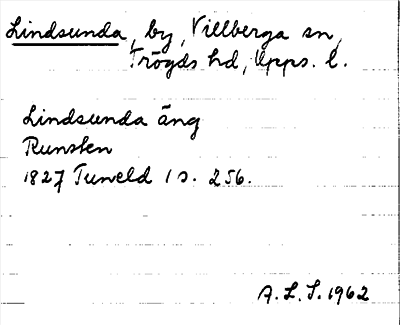 Lindsunda, by, Villberga sn,
Trögds hd, Upps. l.
Lindsunda äng
Runsten
1827 Tuneld 1 s. 256.
A. L. S. 1962